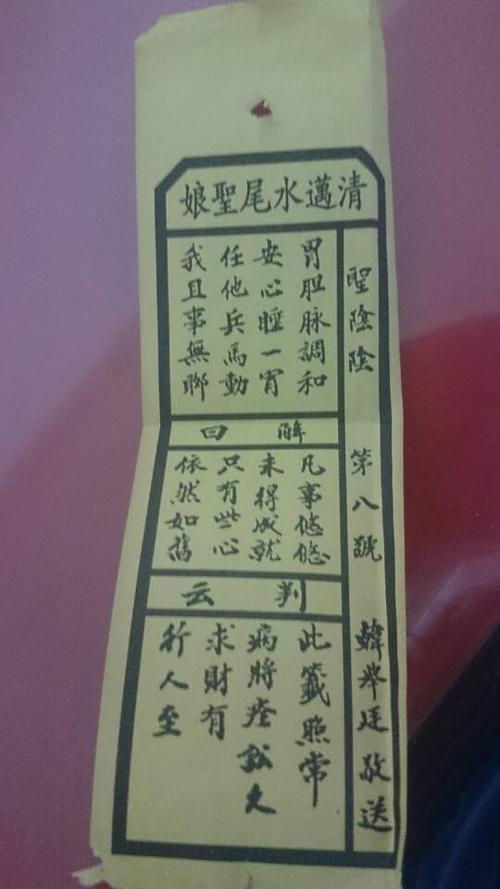 清邁水尾聖娘
聖陰陰 第八號 韓举廷敬送
胃胆脉調和
安心睡一宵
任他兵馬動
我且事無聊
解曰
凡事悠悠
未得成就
只有些心
依然如舊
判云
此籤照常
病將痊訟久
求財有
行人至